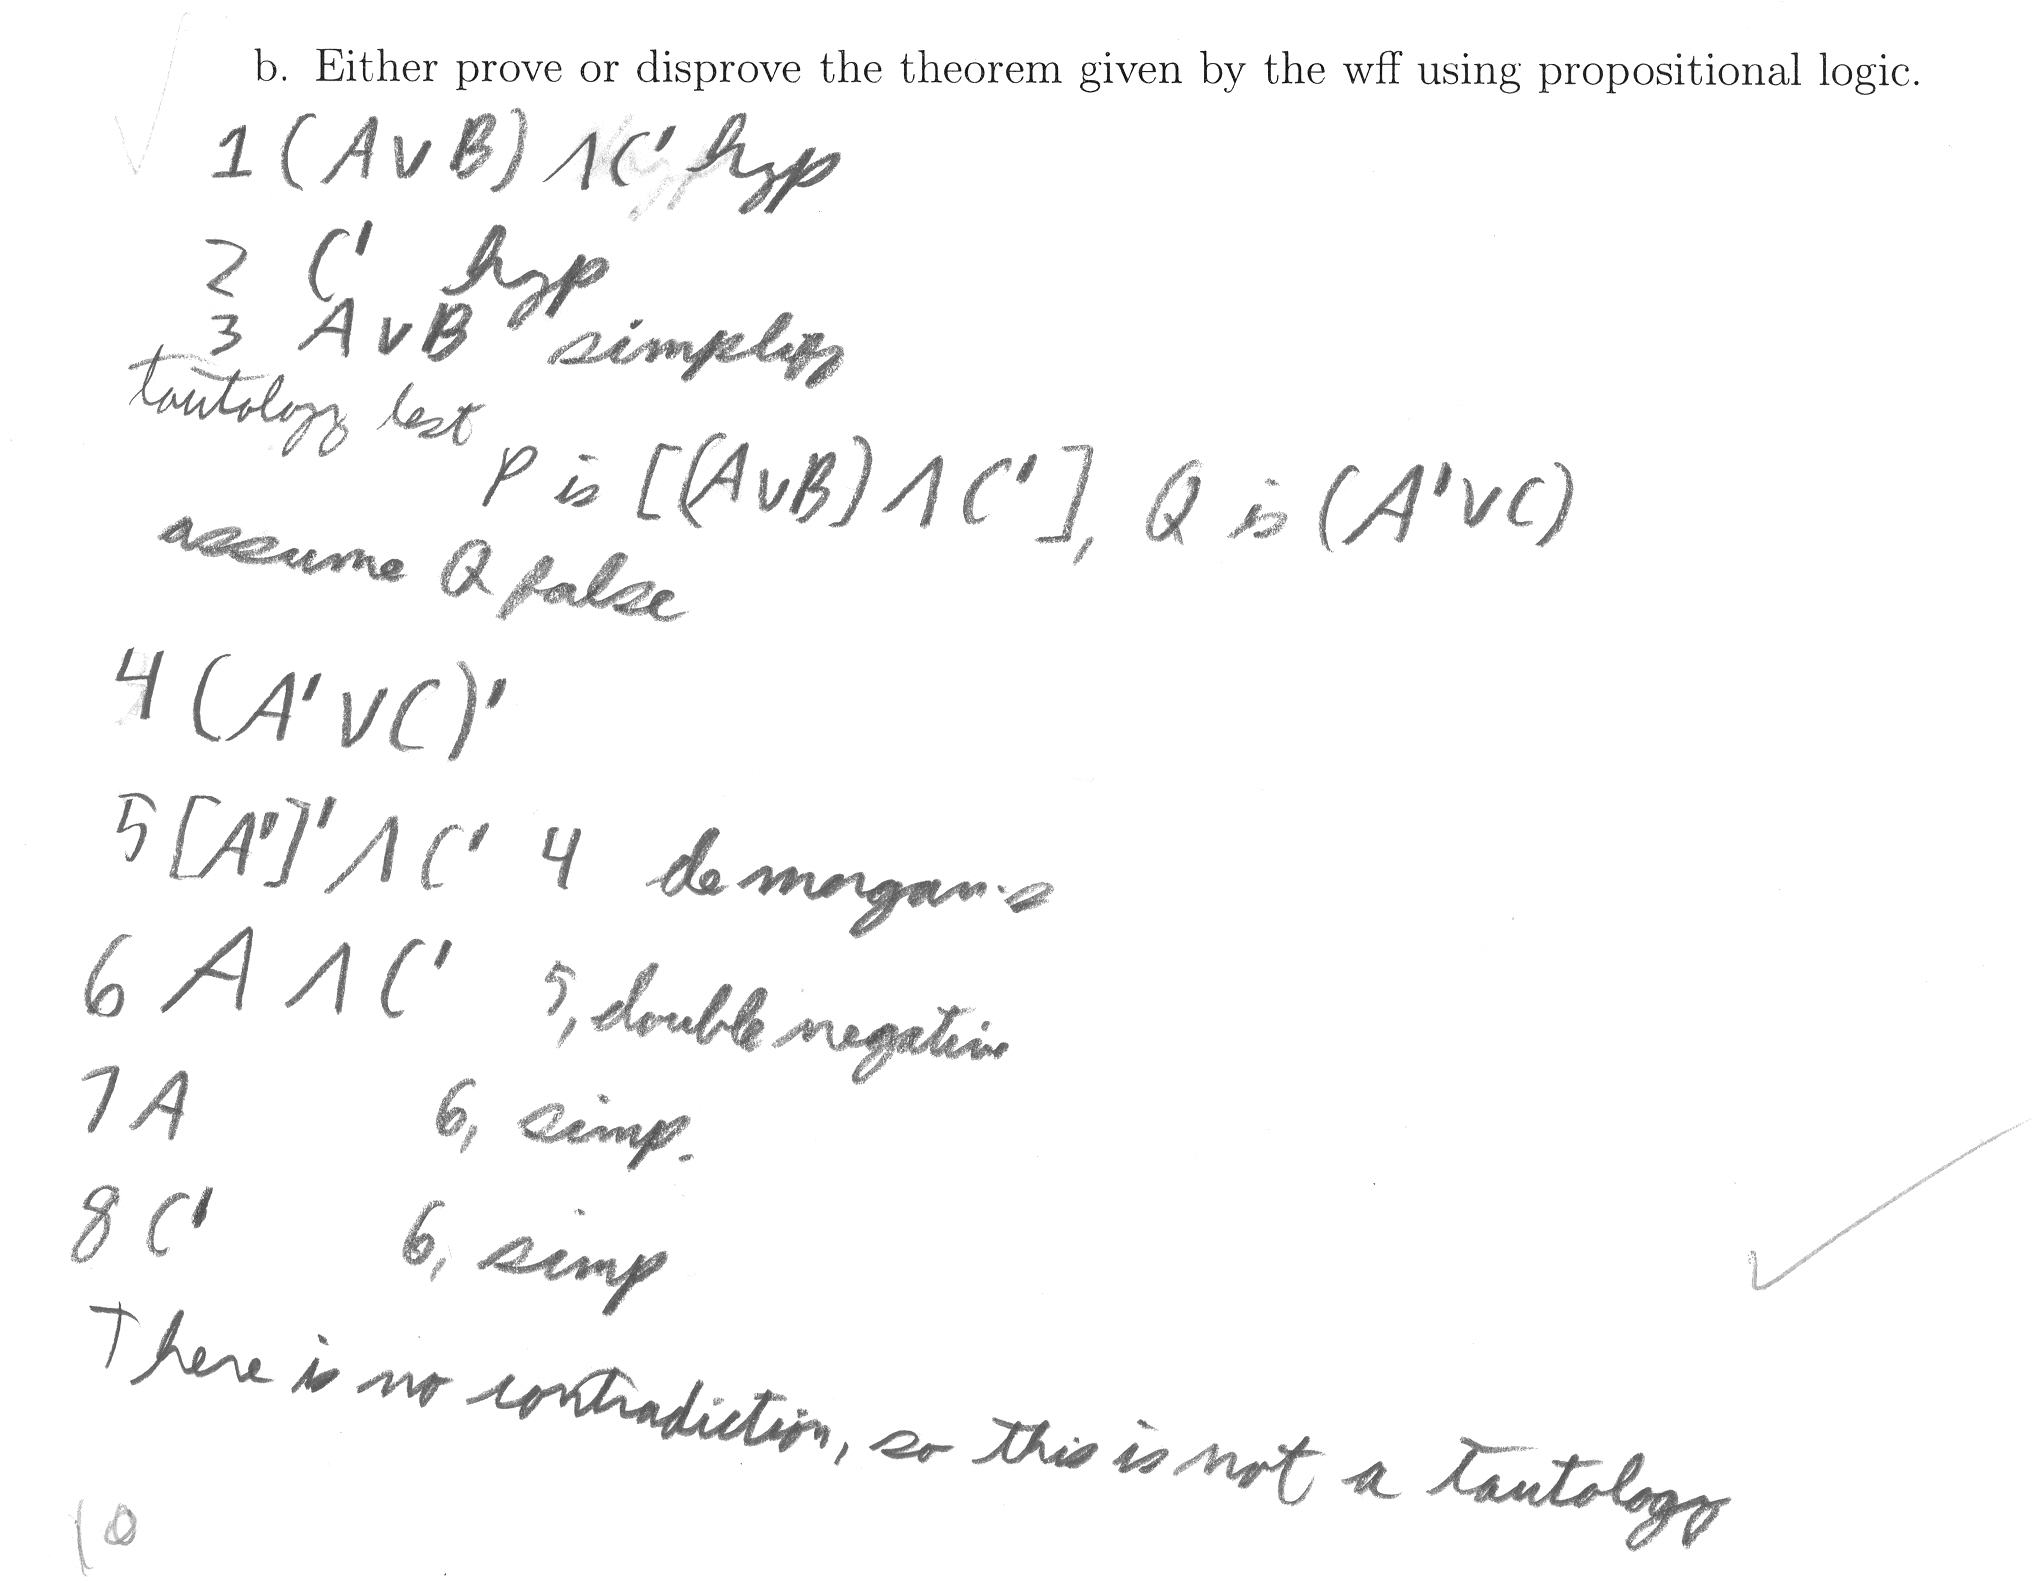 b. Either prove or disprove the theorem given by the wff using propositional logic.
1 (A∨B) ∧ C' hyp
2 C' hyp
3 A∨B simplify
tautology test
P is [(A∨B) ∧ C'], Q is (A'∨C)
assume Q false
4 (A'∨C)'
5 [A']' ∧ C' 4 de morgan's
6 A ∧ C' 5, double negation
7 A 6, simp.
8 C' 6, simp
There is no contradiction, so this is not a tautology
10